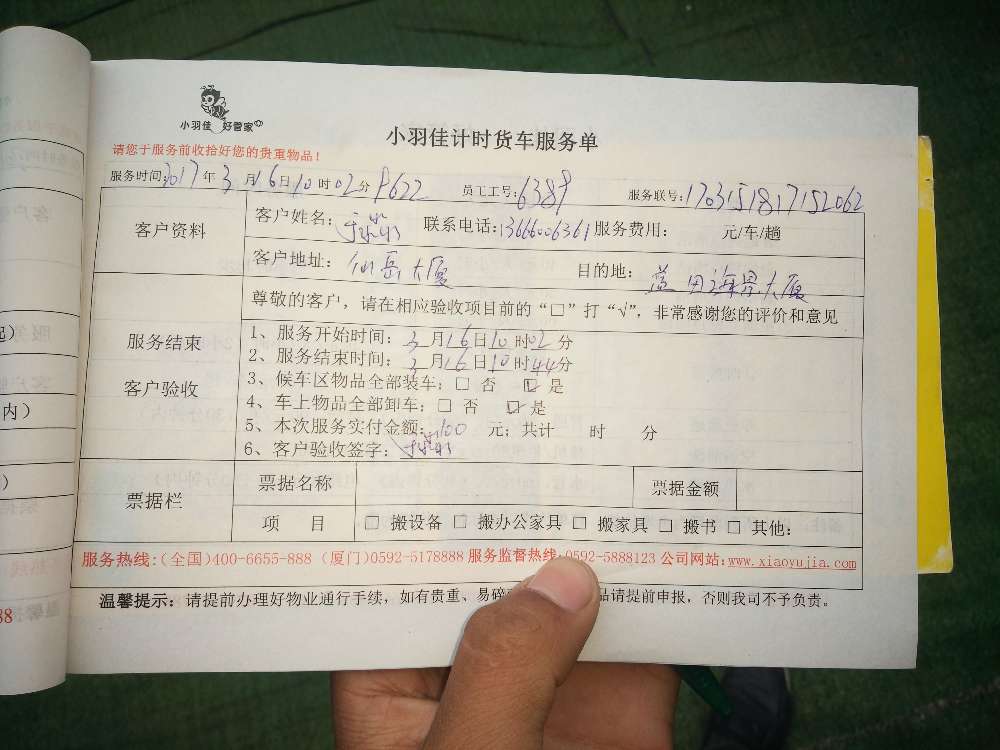 小羽佳 好管家
小羽佳计时货车服务单
请您于服务前收拾好您的贵重物品！
服务时间：2017年3月16日10时02分 P622 员工工号：6389 服务联号：1703151817152062
客户资料
客户姓名： 联系电话：13666006361 服务费用： 元/车/趟
客户地址：仙岳大厦 目的地：蓝田海景大厦
服务结束
客户验收
尊敬的客户，请在相应验收项目前的“□”打“√”，非常感谢您的评价和意见
1、服务开始时间：3月16日10时02分
2、服务结束时间：3月16日10时44分
3、候车区物品全部装车：□ 否 ☑ 是
4、车上物品全部卸车：□ 否 ☑ 是
5、本次服务实付金额：100 元；共计 时 分
6、客户验收签字：
票据栏
票据名称 票据金额
项 目 □ 搬设备 □ 搬办公家具 □ 搬家具 □ 搬书 □ 其他：
服务热线：（全国）400-6655-888（厦门）0592-5178888 服务监督热线：0592-5888123 公司网站：www.xiaoyujia.com
温馨提示：请提前办理好物业通行手续，如有贵重、易碎 品请提前申报，否则我司不予负责。
内）
88